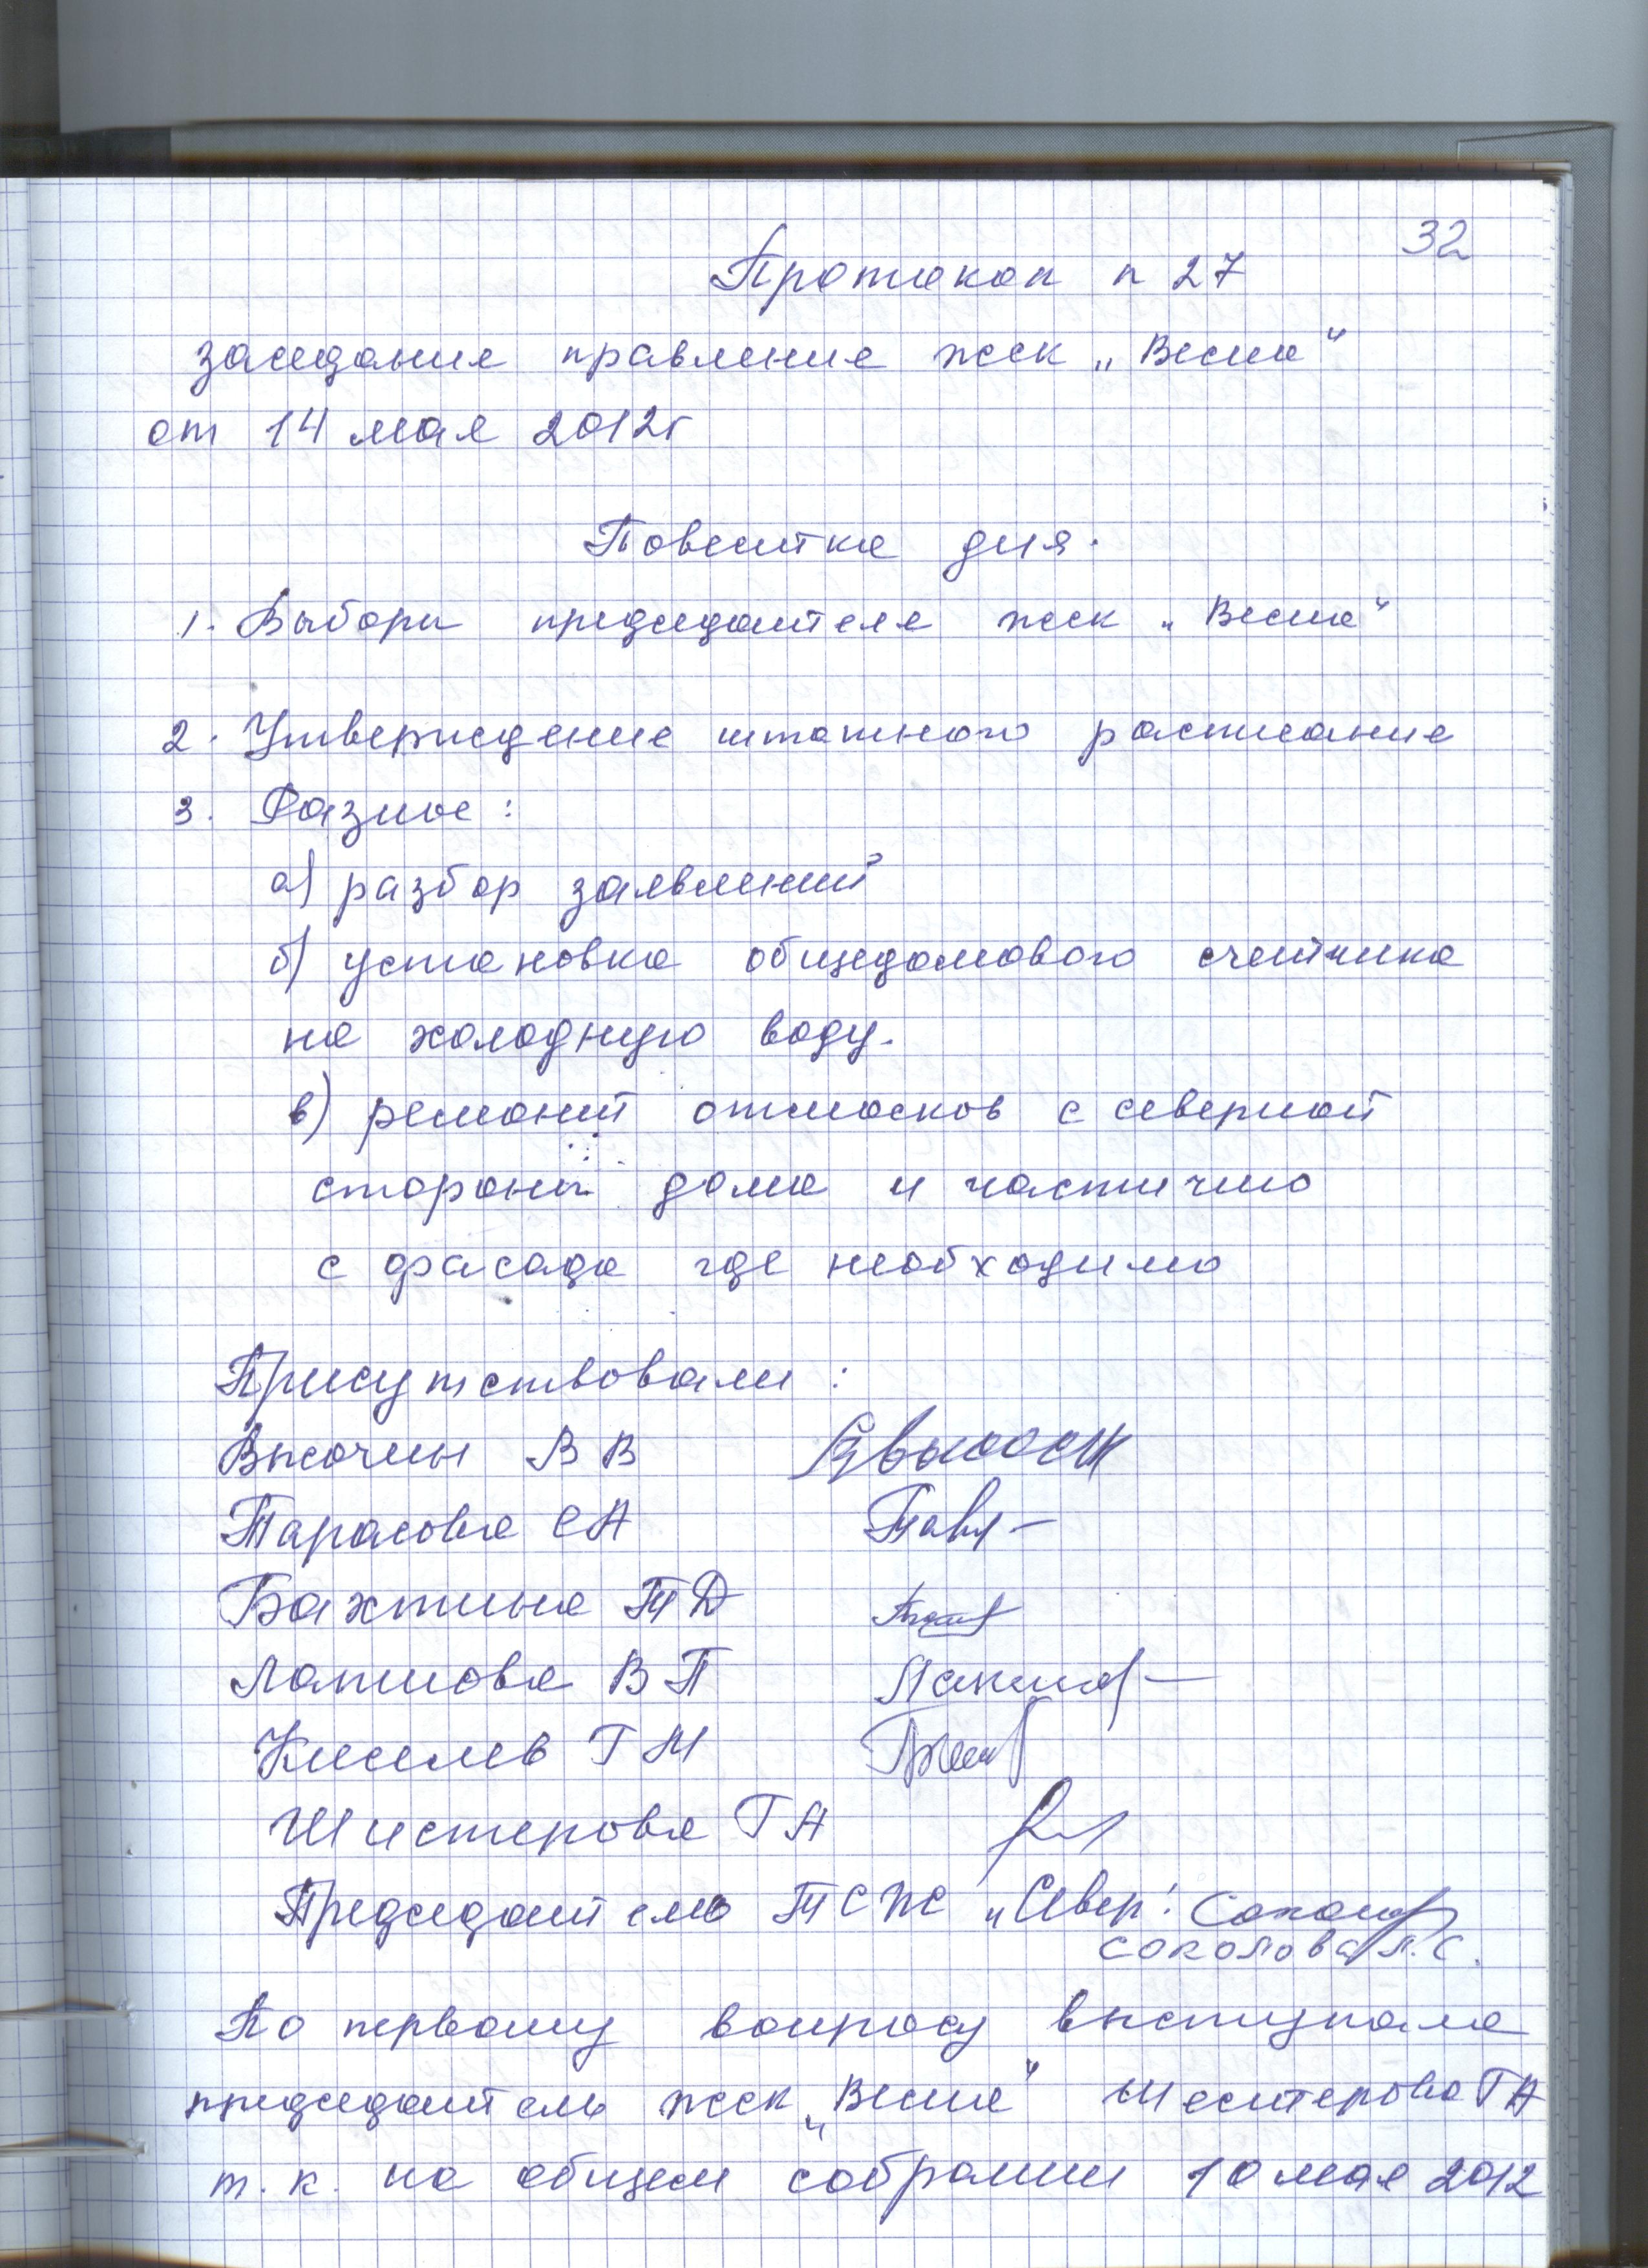 32
Протокол n 27
заседания правления жск „Весна“
от 14 мая 2012г
Повестка дня.
1. Выборы председателя жск „Весна“
2. Утверждение штатного расписания
3. Разное:
а) разбор заявлений
б) установка общедомового счетчика
на холодную воду.
в) ремонт отмосков с северной
стороны дома и частично
с фасада где необходимо
Присутствовали:
Высочин В В
Тарасова С А
Бахтина Т Д
Лапшова В П
Киселев Г М
Шистерова Г А
Председатель ТСЖ „Север“:
Соколова Л.С.
По первому вопросу выступала
председатель жск „Весна“ Шестерова Г А
т.к. на общем собрании 10 мая 2012